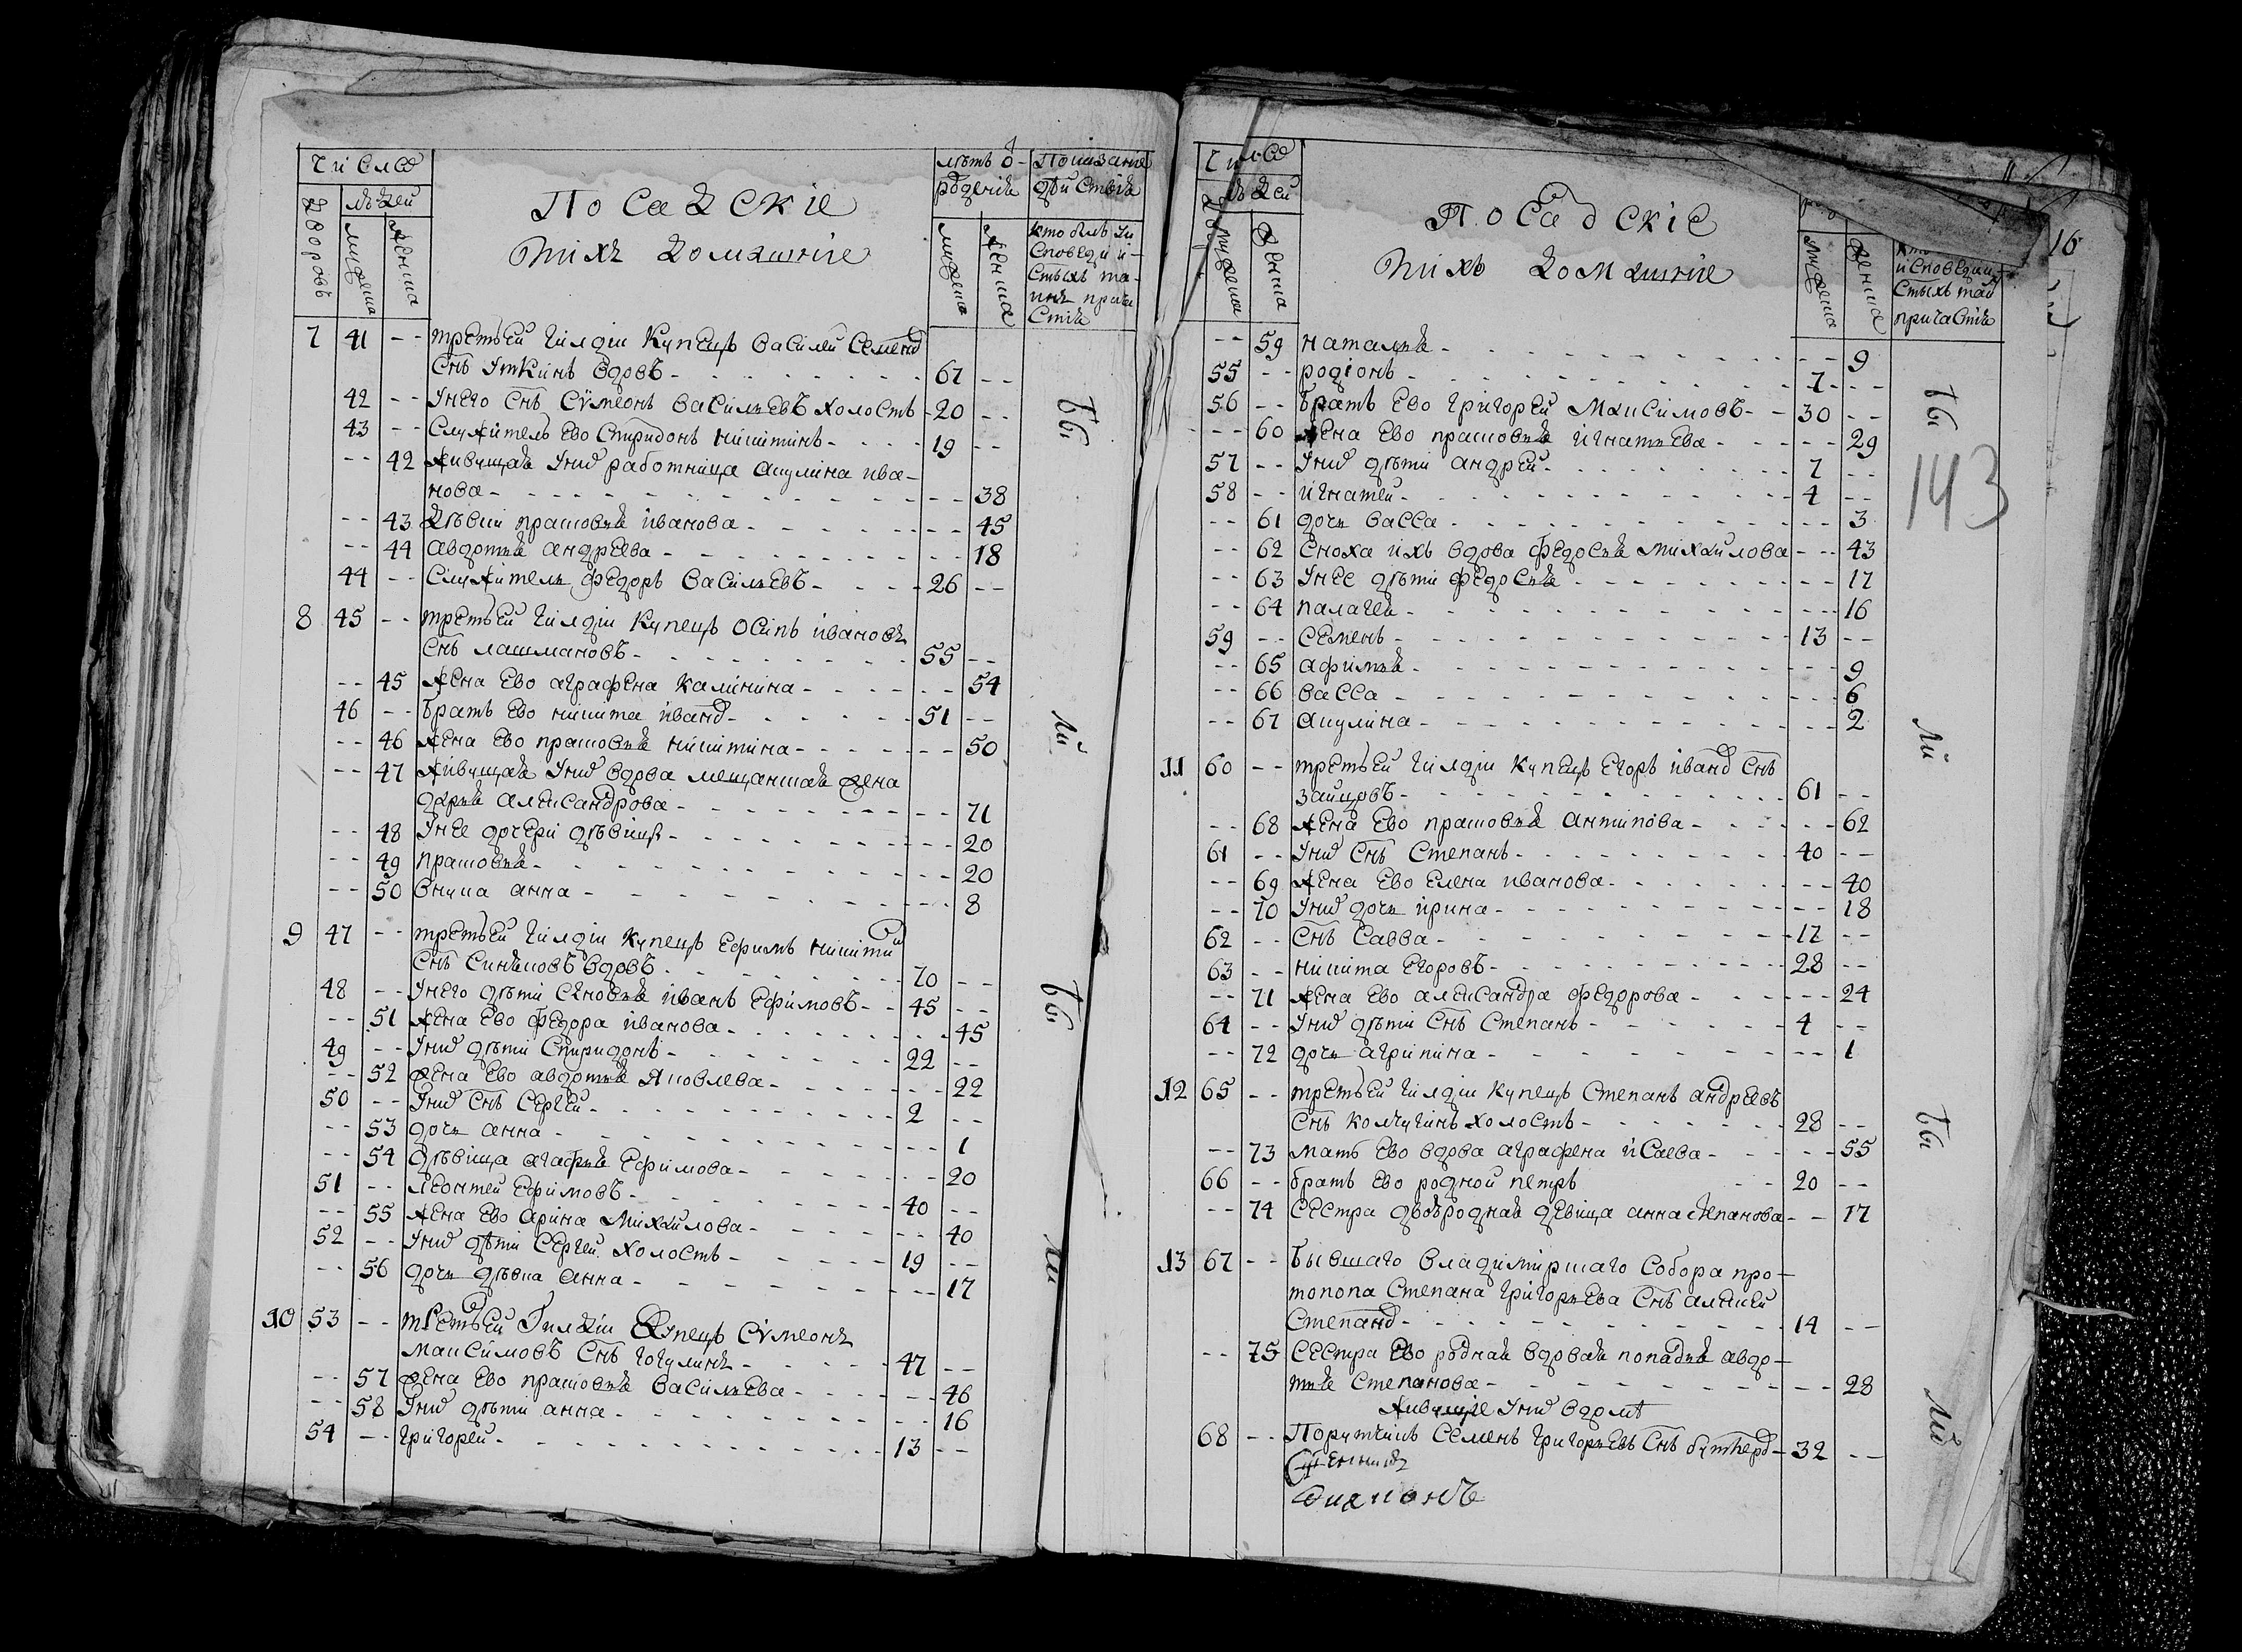 число
людей
дворовъ
мужеска
женска
Посадскіе
и ихъ домашніе
лѣтъ о-
рожденіѧ
мужеска
женска
Показаніе
дѣйствіѧ
кто былъ у и
споведи и
стыхъ та-
инъ прича
стіѧ
7 41 -- третьей гилдіи купецъ василей семено
снъ уткинъ вдовъ - 67 --
42 -- у него снъ сѵмеонъ васильевъ холостъ - 20 --
43 -- служитель ево спиридонъ никитинъ - 19 --
-- 42 живущаѧ у них работница акулина ива-
нова - -- 38
-- 43 девки прасковьѧ иванова - -- 45
-- 44 авдотьѧ андреева - -- 18
44 -- служитель федоръ васильевъ - 26 --
8 45 -- третьей гилдіи купецъ осипъ ивановъ
снъ лашмановъ - 55 --
-- 45 жена ево аграфена калинина - -- 54
46 -- братъ ево никита ивано - 51 --
-- 46 жена ево прасковьѧ никитина - -- 50
-- 47 живущаѧ у них вдова мещанскаѧ жена
дарьѧ александрова - -- 71
-- 48 у нее дочери дѣвицы - -- 20
-- 49 прасковьѧ - -- 20
-- 50 внука анна - -- 8
9 47 -- третьей гилдіи купецъ ефимъ никитин
снъ синѧковъ вдовъ - 70 --
48 -- у него дѣти сыновьѧ иванъ ефимовъ - 45 --
-- 51 жена ево федора иванова - -- 45
49 -- у них дѣти спиридонъ - 22 --
-- 52 жена ево авдотьѧ яковлева - -- 22
50 -- у них снъ сергей - 2 --
-- 53 дочь анна - -- 1
-- 54 дѣвица агафьѧ ефимова - -- 20
51 -- леонтей ефимовъ - 40 --
-- 55 жена ево арина михайлова - -- 40
52 -- у них дѣти сергей холостъ - 19 --
-- 56 дочь дѣвка анна - -- 17
10 53 -- третьей гилдіи купецъ сѵмеонъ
максимовъ снъ гогулинъ - 47 --
-- 57 жена ево прасковьѧ васильева - -- 46
-- 58 у них дѣти анна - -- 16
54 -- григорей - 13 --
бы
ли
бы
ли
число
людей
мужеска
женска
Посадскіе
и ихъ домашніе
мужеска
женска
исповеди и
стыхъ таи
причастіѧ
16
143
-- 59 натальѧ - -- 9
55 -- родіонъ - 7 --
56 -- братъ ево григорей максимовъ - 30 --
-- 60 жена ево прасковьѧ игнатьева - -- 29
57 -- у них дѣти андрей - 7 --
58 -- игнатей - 4 --
-- 61 дочь васса - -- 3
-- 62 сноха ихъ вдова федосьѧ михайлова - -- 43
-- 63 у нее дѣти федосьѧ - -- 17
-- 64 палагеѧ - -- 16
59 -- семенъ - 13 --
-- 65 афимьѧ - -- 9
-- 66 васса - -- 6
-- 67 акулина - -- 2
11 60 -- третьей гилдіи купецъ егоръ ивано снъ
зайцовъ - 61 --
-- 68 жена ево прасковьѧ антипова - -- 62
61 -- у них снъ степанъ - 40 --
-- 69 жена ево елена иванова - -- 40
-- 70 у них дочь ирина - -- 18
62 -- снъ савва - 17 --
63 -- никита егоровъ - 28 --
-- 71 жена ево александра федорова - -- 24
64 -- у них дѣти снъ степанъ - 4 --
-- 72 дочь агрипина - -- 1
12 65 -- третьей гилдіи купецъ степанъ андреевъ
снъ колчугинъ холостъ - 28 --
-- 73 мать ево вдова аграфена исаева - -- 55
66 -- братъ ево родной петръ -- 20 --
-- 74 сестра двоюроднаѧ девица анна степанова -- 17
13 67 -- бывшаго владимирскаго собора про-
топопа степана григорьева снъ алексей
степано - 14 --
-- 75 сестра ево роднаѧ вдоваѧ попадьѧ авдо-
тьѧ степанова - -- 28
живущіе у них в доме
68 -- Порутчикъ семенъ григорьевъ снъ - 32 --
бы
ли
бы
ли